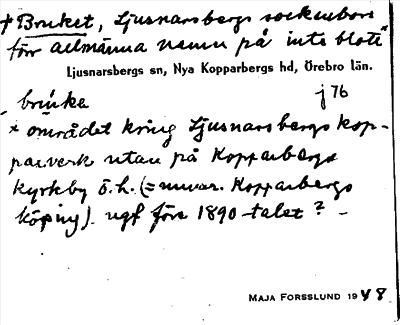 + Bruket, Ljusnarsbergs sockenbors
förr allmänna namn på inte blott
Ljusnarsbergs sn, Nya Kopparbergs hd, Örebro län.
brúke j 76
× området kring Ljusnarsbergs kop-
parverk utan på Kopparbergs
kyrkby ö. h. (= nuvar. Kopparbergs
köping). ngf före 1890-talet? –
MAJA FORSSLUND 19 48